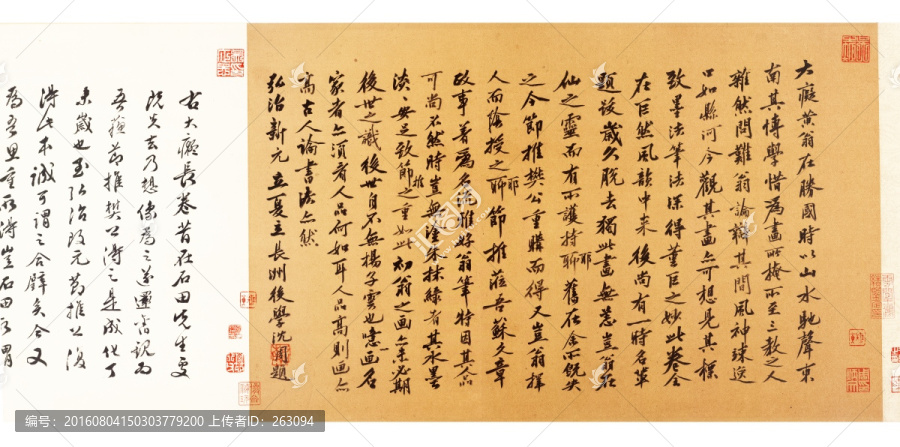 大癡黃翁在勝國時以山水馳聲東
南其博學惜為畫所掩所至三教之人
雜然問難翁論辯其間風神竦逸
口如懸河今觀其畫亦可想見其標
致墨法筆法深得董巨之妙此卷全
在巨然風韻中來後尚有一時名輩
題跋歲久脫去獨此畫無恙豈翁在
仙之靈而有所護持耶舊在余所既失
之今節推樊公重購而得又豈翁擇
人而陰授之耶節推蒞吾蘇文章
政事著為名流雅好翁筆特因其人品
可尚不然時豈無塗朱抹綠者其水墨
淡淡安足致節推之重如此初翁之画亦未必期
後世之識後世自不無揚子雲也噫画名
家者亦須看人品何如耳人品高則画亦
高古人論書法亦然
弘治新元立夏長洲後學沈周題
右大癡長卷昔在石田先生處
既失去乃想像為之遂還舊觀為
吾蘇節推樊公得之是成化丁
未歲也至弘治改元節推公復
得此本誠可謂之合璧矣今又
為吾思重所得豈石田所謂
编号:20160804150303779200 ID:263094